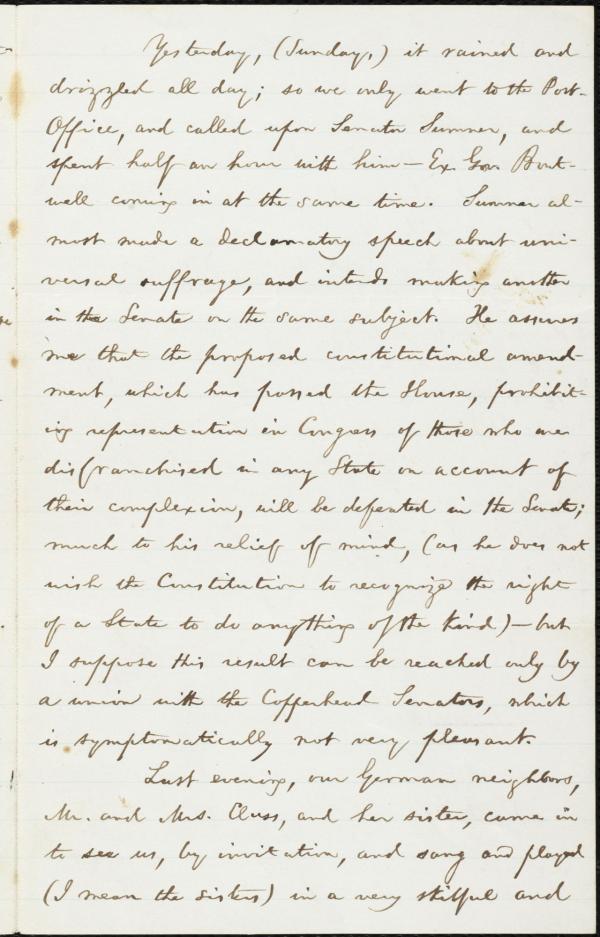 Yesterday, (Sunday,) it rained and
drizzled all day; so we only went to the Post-
Office, and called upon Senator Sumner, and
spent half an hour with him — Ex. Gov. Bout-
well coming in at the same time. Sumner al-
most made a declamatory speech about uni-
versal suffrage, and intends making another
in the Senate on the same subject. He assures
me that the proposed constitutional amend-
ment, which has passed the House, prohibit-
ing representation in Congress of those who are
disfranchised in any State on account of
their complexion, will be defeated in the Senate;
much to his relief of mind, (as he does not
wish the Constitution to recognize the right
of a State to do anything of the kind) — but
I suppose this result can be reached only by
a union with the Copperhead Senators, which
is symptomatically not very pleasant.
Last evening, our German neighbors,
Mr. and Mrs. Cluss, and her sister, came in
to see us, by invitation, and sang and played
(I mean the sisters) in a very skilful and